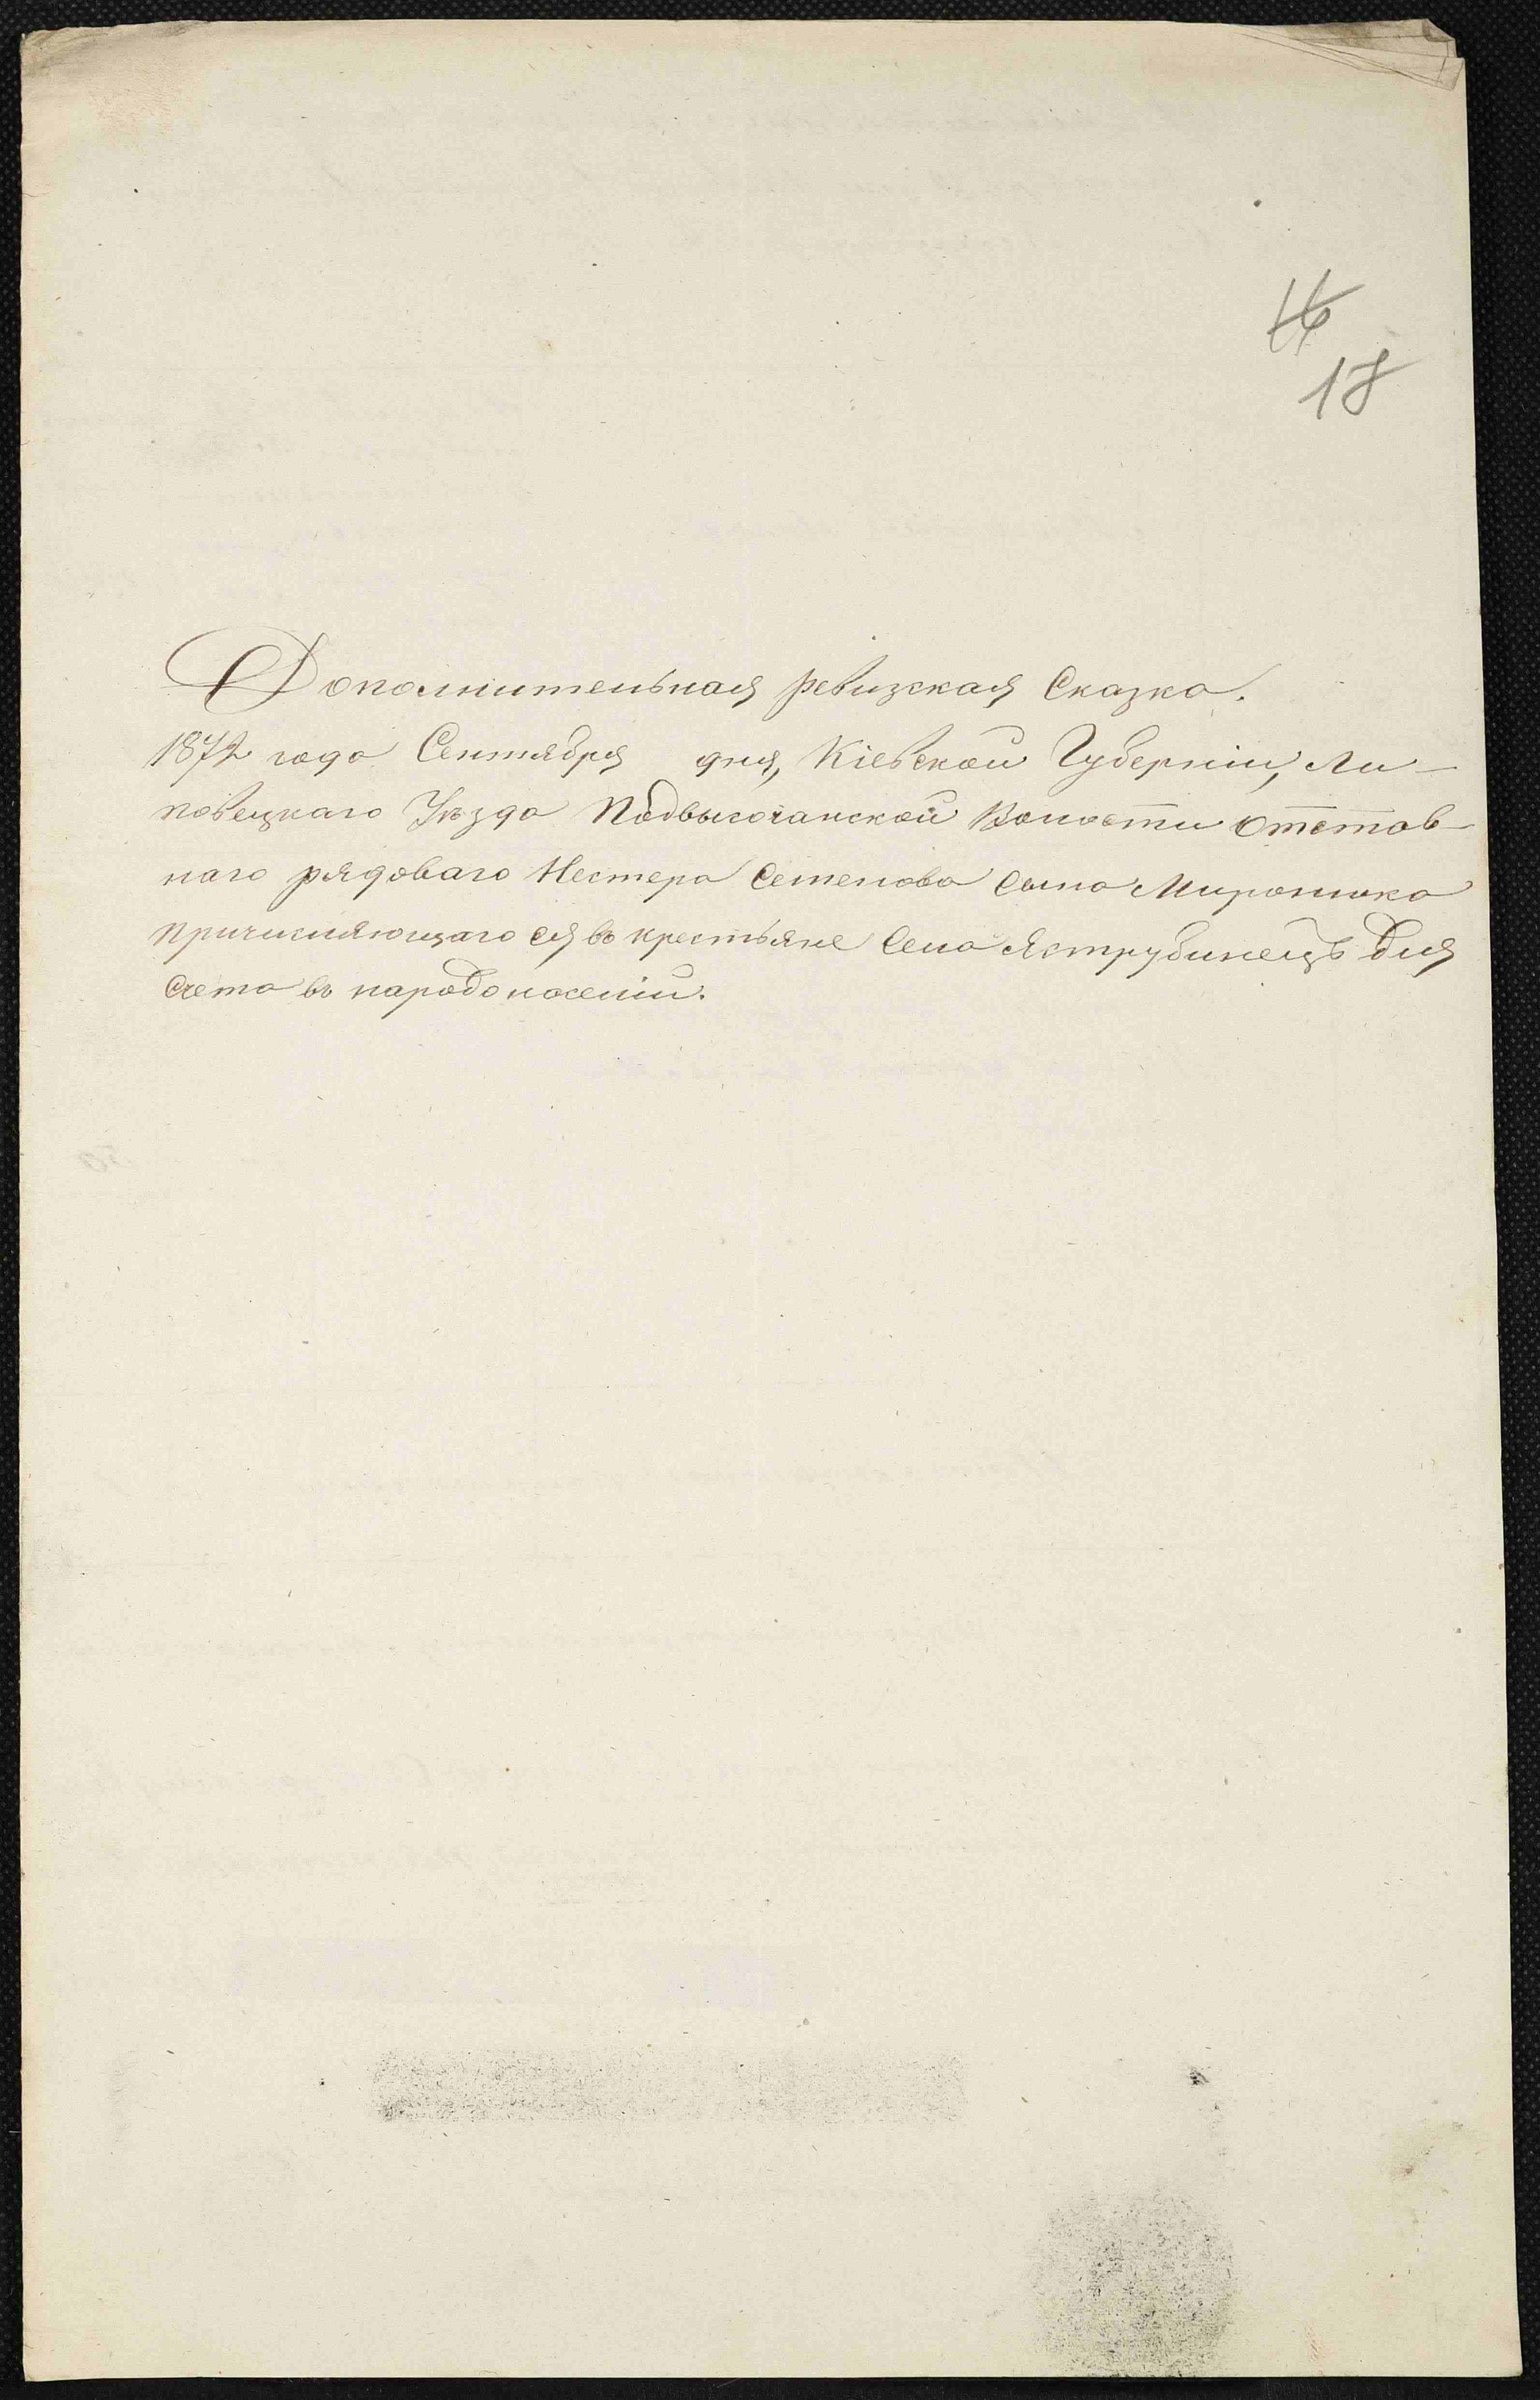 16
18
Дополнительная ревизская Сказка.
1872 года Сентября дня, Кіевской Губерніи, Ли-
повецкаго Уѣзда Подвысочанской Волости Отстав-
наго рядоваго Нестера Семенова Сына Миронюка
причисляющаго ся въ крестьяне Села Яструбинецъ для
счета въ народонаселеніи.